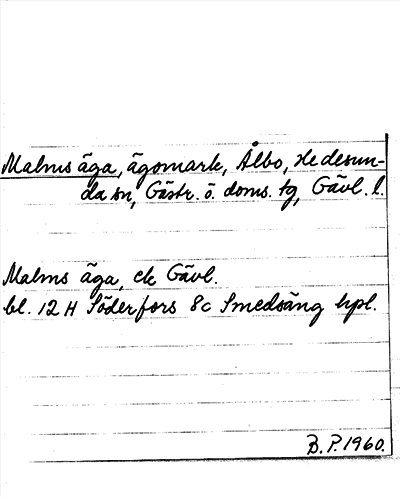 Malms äga, ägomark, Ålbo, Hedesun-
da sn, Gästr. ö. doms. tg, Gävl. l.
Malms äga, ek Gävl.
bl. 12 H Söderfors 8c Smedsäng hpl.
B. P. 1960.